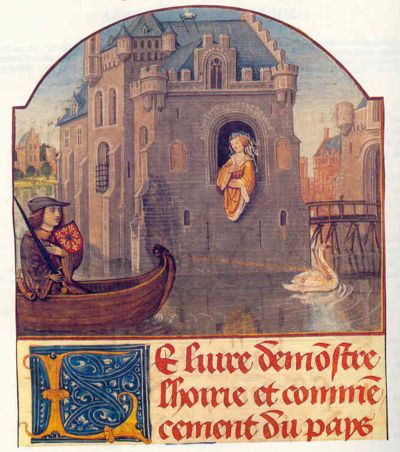 LE liure demõstre
lhoirie et commẽ
cement du pays